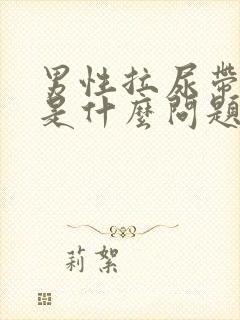 男性拉尿带
是什麼問題
莉絮